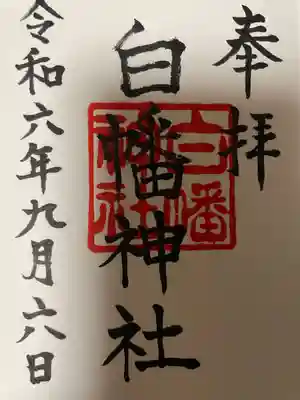 奉拝
白幡神社
白幡
神社
令和六年九月六日